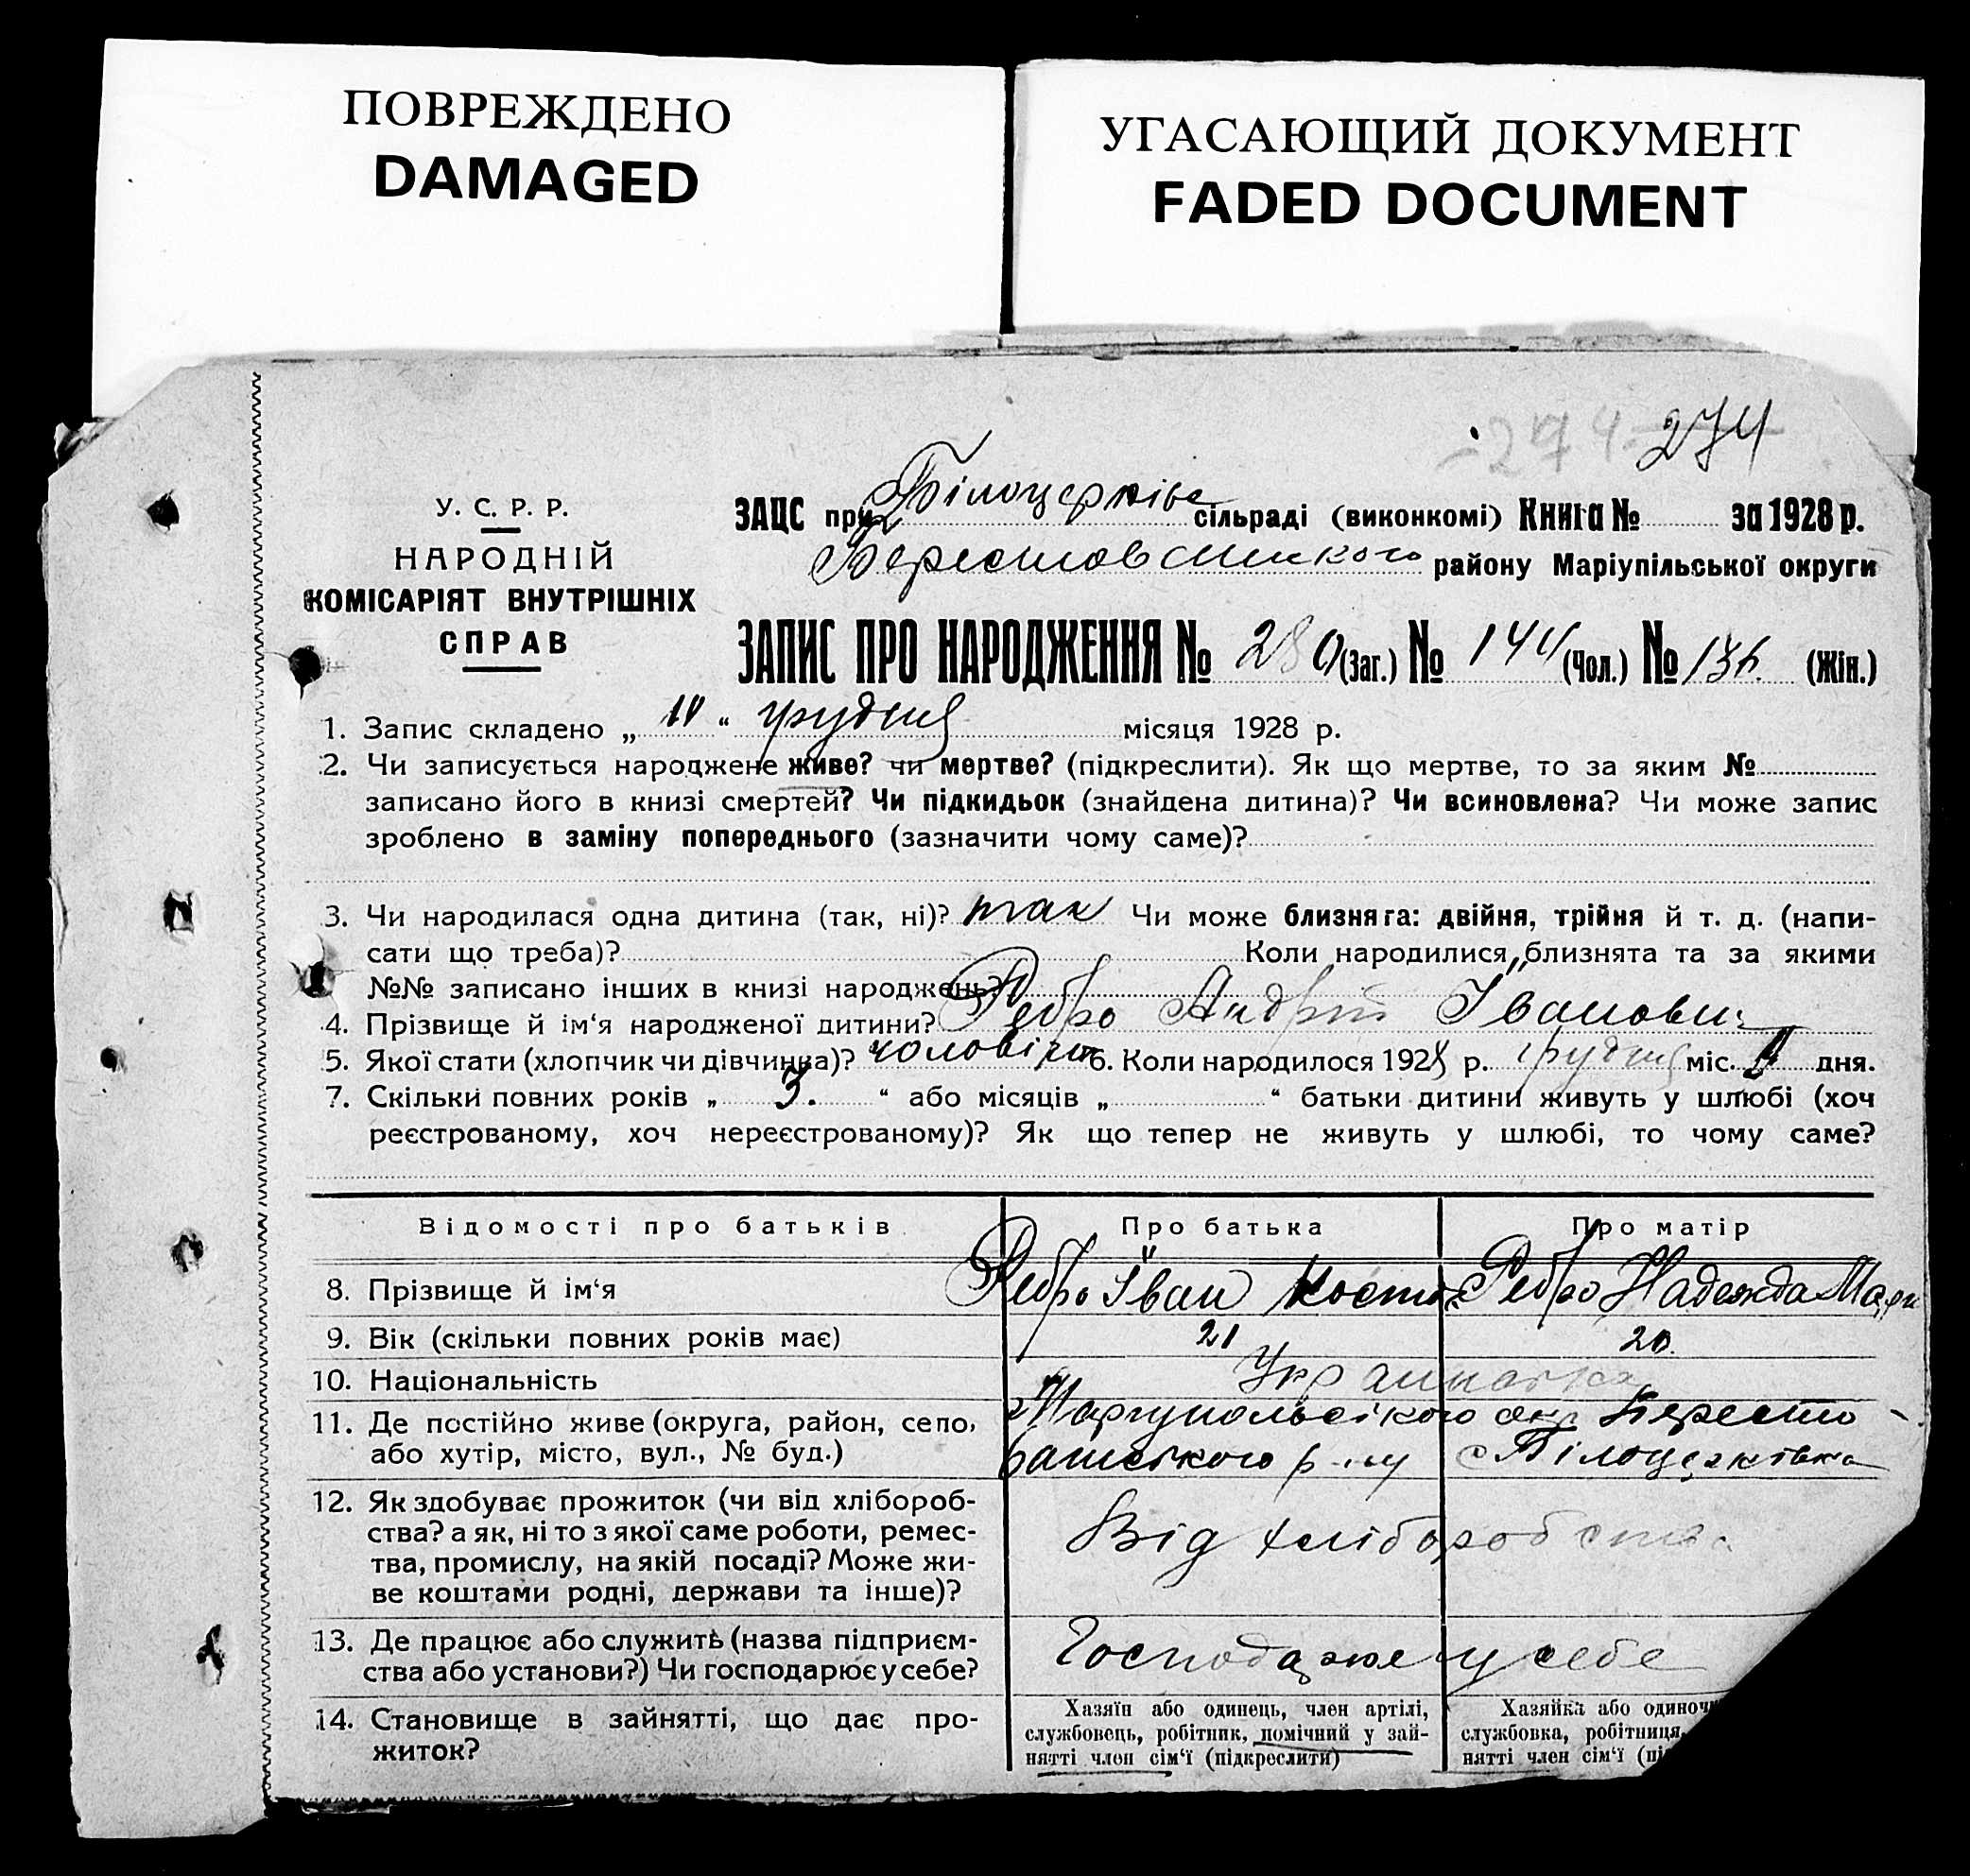 ПОВРЕЖДЕНО
DAMAGED
УГАСАЮЩИЙ ДОКУМЕНТ
FADED DOCUMENT
274 274
У. С. Р. Р.
НАРОДНІЙ
КОМІСАРІЯТ ВНУТРІШНІХ
СПРАВ
ЗАЦС при Білоцерківс сільраді (виконкомі) Книга № за 1928 р.
району Маріупільської округи
ЗАПИС ПРО НАРОДЖЕННЯ № 280 (Заг.) № 144 (Чол.) № 136. (Жін.)
1. Запис складено „ “ грудня місяця 1928 р.
2. Чи записується народжене живе? чи мертве? (підкреслити). Як що мертве, то за яким №
записано його в книзі смертей? Чи підкидьок (знайдена дитина)? Чи всиновлена? Чи може запис
зроблено в заміну попереднього (зазначити чому саме)?
3. Чи народилася одна дитина (так, ні)? так Чи може близнята: двійня, трійня й т. д. (напи-
сати що треба)? Коли народилися близнята та за якими
№№ записано інших в книзі народжень?
4. Прізвище й ім‘я народженої дитини? Ребро Андрій Іванович
5. Якої стати (хлопчик чи дівчинка)? 6. Коли народилося 1928 р. грудня міс. дня.
7. Скільки повних років „ 3. “ або місяців „ “ батьки дитини живуть у шлюбі (хоч
реєстрованому, хоч нереєстрованому)? Як що тепер не живуть у шлюбі, то чому саме?
Відомості про батьків Про батька Про матір
8. Прізвище й ім‘я Ребро Іван Кости Ребро Надежда
9. Вік (скільки повних років має) 21 20.
10. Національність
11. Де постійно живе (округа, район, село, Маріупольського окр Бересто-
або хутір, місто, вул., № буд.) с Білоцерківка
12. Як здобуває прожиток (чи від хлібороб-
ства? а як, ні то з якої саме роботи, ремес-
тва, промислу, на якій посаді? Може жи-
ве коштами родні, держави та інше)?
Від хліборобства
13. Де працює або служить (назва підприєм-
ства або установи?) Чи господарює у себе?
Господарює у себе
14. Становище в зайнятті, що дає про-
житок?
Хазяїн або одинець, член артілі,
службовець, робітник, помічний у зай-
нятті член сім‘ї (підкреслити)
Хазяйка або одиноч
службовка, робітниця,
нятті член сім‘ї (пі